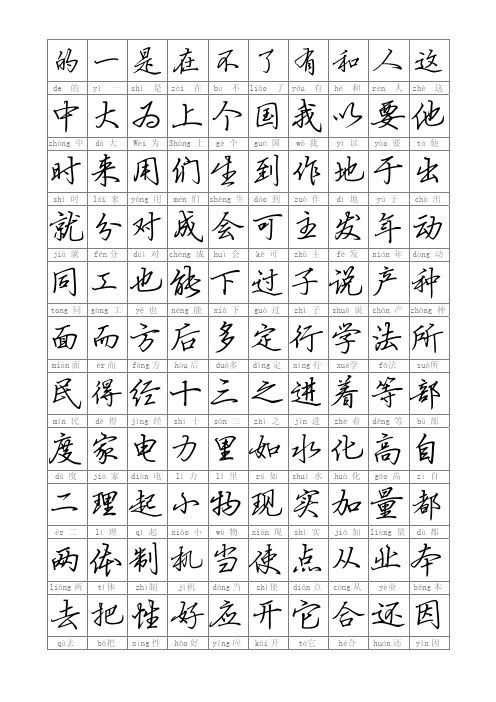 的 一 是 在 不 了 有 和 人 这
de 的 yī 一 shì 是 zài 在 bù 不 liǎo 了 yǒu 有 hé 和 rén 人 zhè 这
中 大 为 上 个 国 我 以 要 他
zhōng 中 dà 大 Wéi 为 Shàng 上 gè 个 guó 国 wǒ 我 yǐ 以 yào 要 tā 他
时 来 用 们 生 到 作 地 于 出
shí 时 lái 来 yòng 用 mén 们 shēng 生 dào 到 zuò 作 dì 地 yú 于 chū 出
就 分 对 成 会 可 主 发 年 动
jiù 就 fēn 分 duì 对 chéng 成 huì 会 kě 可 zhǔ 主 fā 发 nián 年 dòng 动
同 工 也 能 下 过 子 说 产 种
tong 同 gōng 工 yě 也 néng 能 xià 下 guò 过 zhǐ 子 shuō 说 chǎn 产 zhǒng 种
面 而 方 后 多 定 行 学 法 所
miàn 面 ér 而 fāng 方 hòu 后 duō多 dìng 定 xíng 行 xué学 fǎ法 suǒ所
民 得 经 十 三 之 进 着 等 部
mín 民 dé 得 jīng 经 shí 十 sān 三 zhī 之 jìn 进 zhē 着 děng 等 bù 部
度 家 电 力 里 如 水 化 高 自
dù 度 jiā 家 diàn 电 lì 力 lǐ 里 rú 如 shuǐ 水 huà 化 gāo 高 zì 自
二 理 起 小 物 现 实 加 量 都
èr 二 lǐ 理 qǐ 起 xiǎo 小 wù 物 xiàn 现 shí 实 jiā 加 liàng 量 dū 都
两 体 制 机 当 使 点 从 业 本
liǎng 两 tǐ体 zhì制 jī机 dāng 当 shǐ使 diǎn 点 cóng 从 yè业 běng 本
去 把 性 好 应 开 它 合 还 因
qù去 bǎ把 xìng 性 hǎo 好 yīng 应 kāi 开 tā它 hé合 huán 还 yīn 因